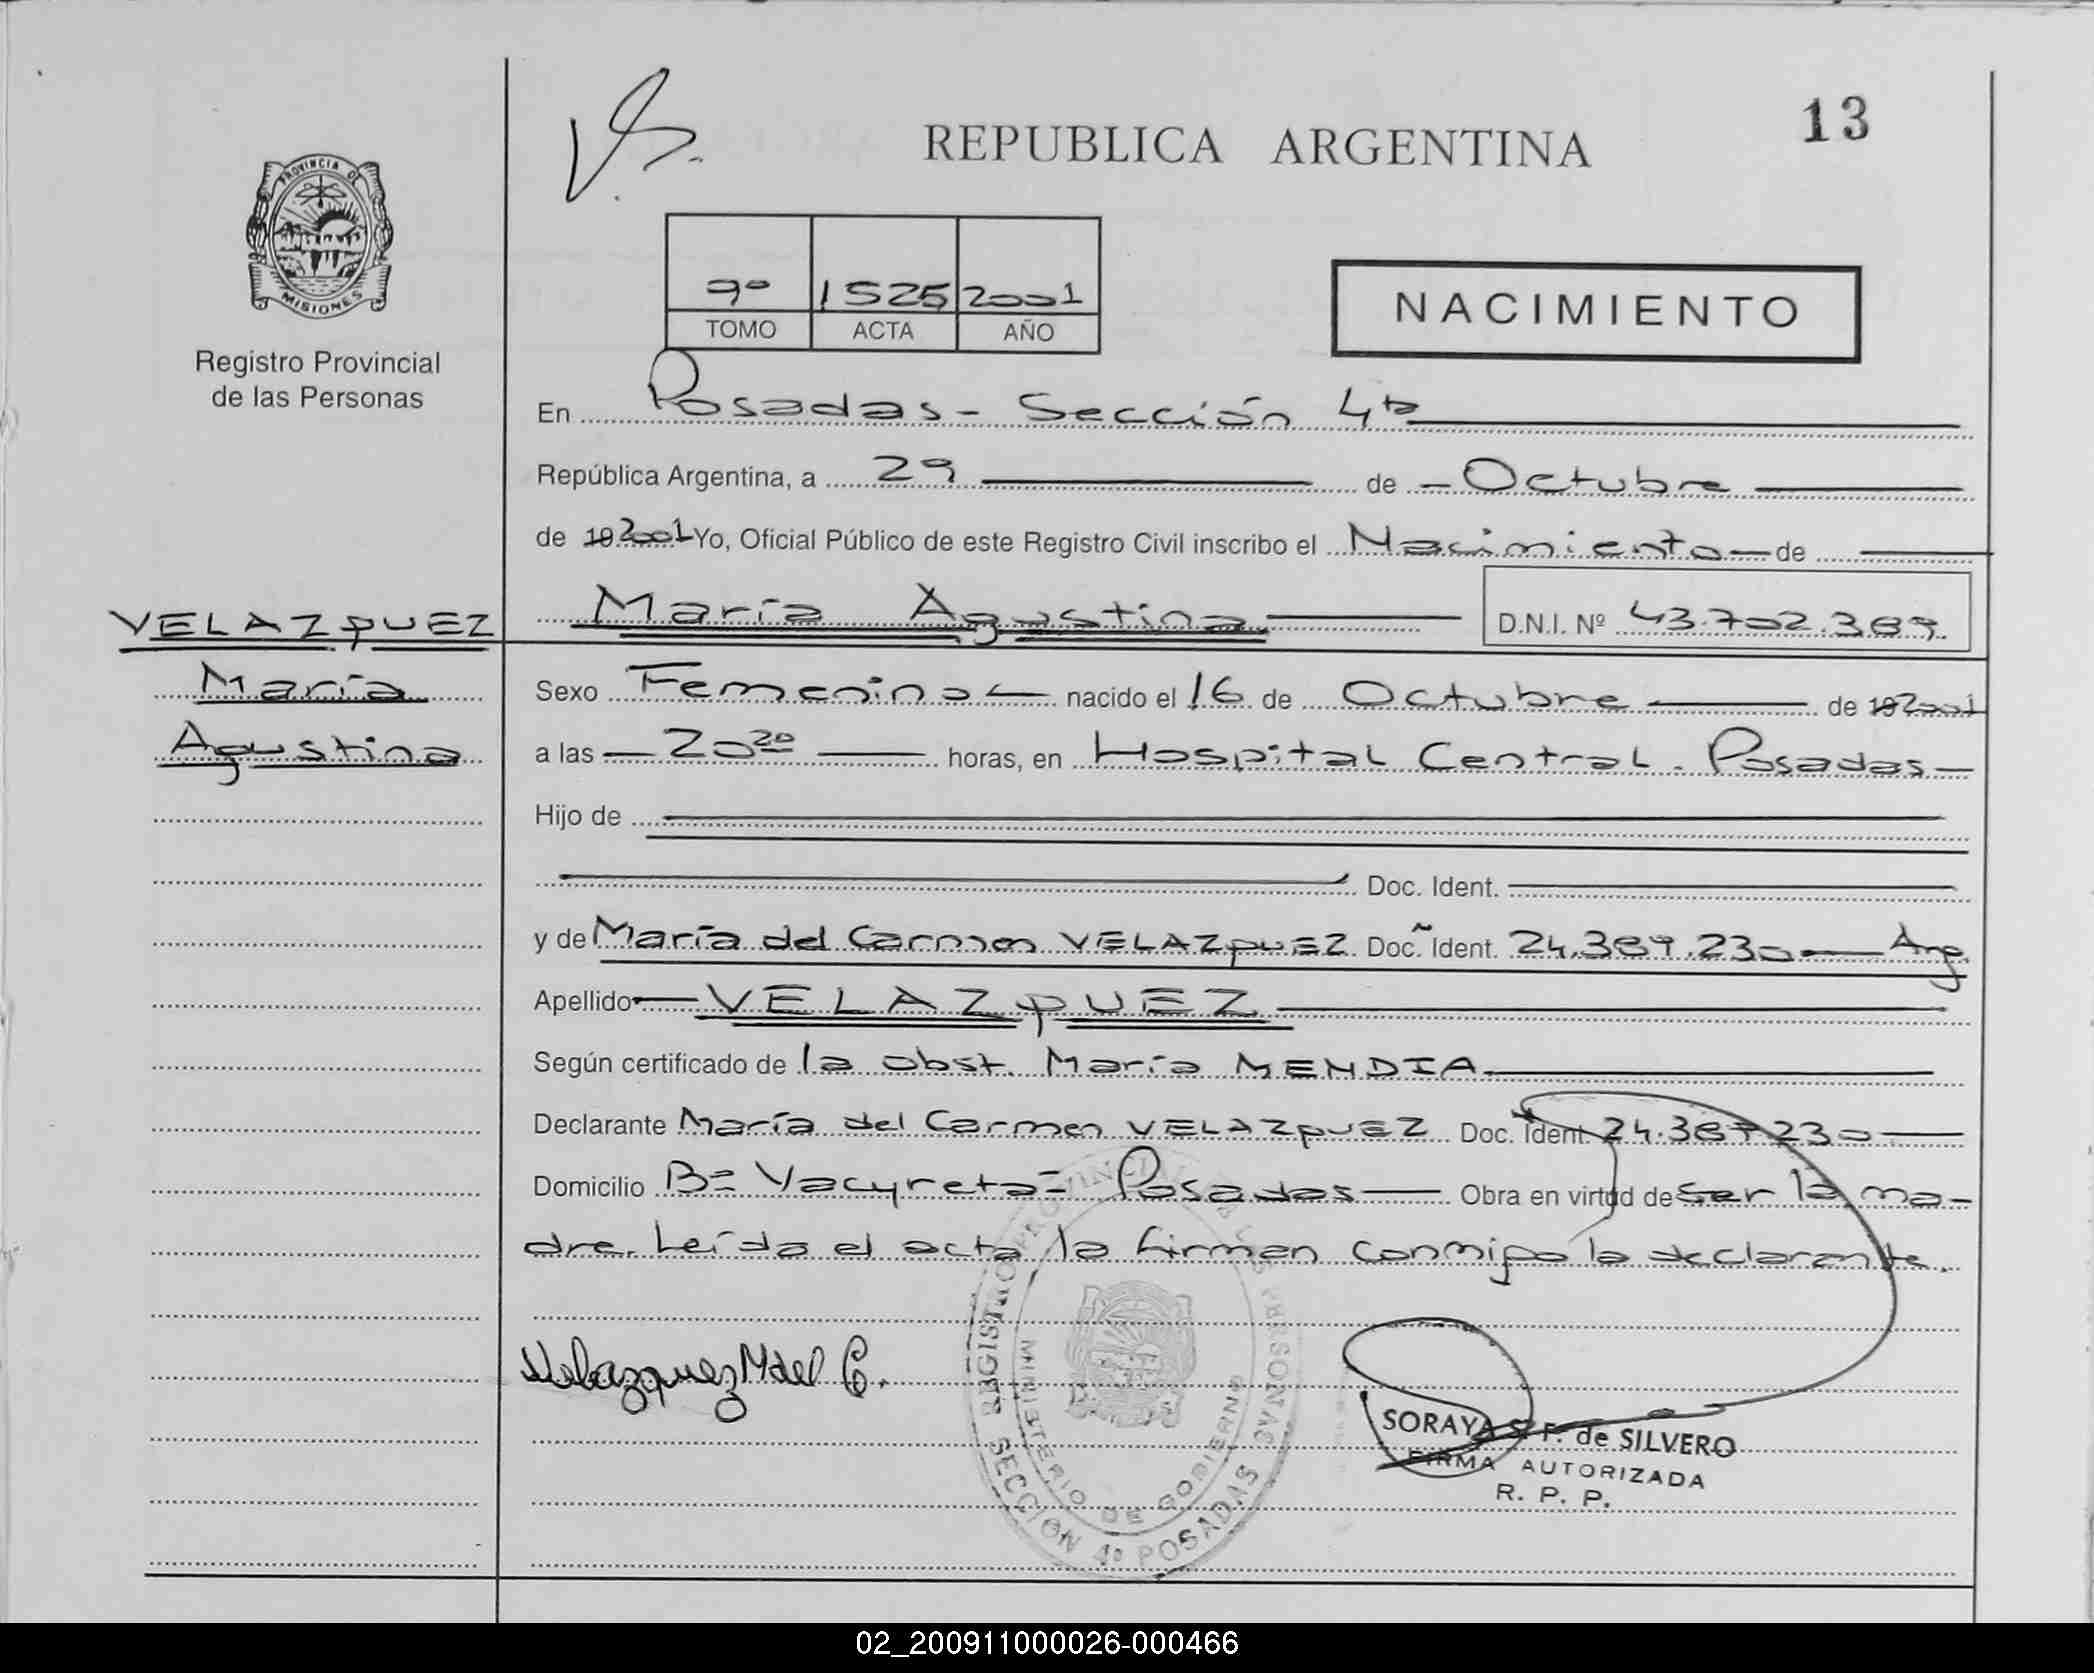 13
REPUBLICA ARGENTINA
PROVINCIA DE
MISIONES
Registro Provincial
de las Personas
9º 1525 2001
TOMO ACTA AÑO
NACIMIENTO
En Posadas - Sección 4ta
República Argentina, a 29 de Octubre
de 19 2001 Yo, Oficial Público de este Registro Civil inscribo el Nacimiento de
María Agustina D.N.I. Nº 43.702.389
VELAZQUEZ
María
Agustina
Sexo Femenino nacido el 16 de Octubre de 19 2001
a las 20 20 horas, en Hospital Central. Posadas
Hijo de
Doc. Ident.
y de María del Carmen VELAZQUEZ Doc. Ident. 24.389.230 Arg.
Apellido VELAZQUEZ
Según certificado de la obst. María MENDIA
Declarante María del Carmen VELAZQUEZ Doc. Ident. 24.389.230
Domicilio Bº Yacyretá - Posadas Obra en virtud de ser la ma-
dre. Leída el acta la firman conmigo la declarante.
Velazquez M del C.
REGISTRO PROVINCIAL DE LAS PERSONAS
MINISTERIO DE GOBIERNO
SECCION 4º POSADAS
SORAYA S. F. de SILVERO
FIRMA AUTORIZADA
R. P. P.
02_200911000026-000466